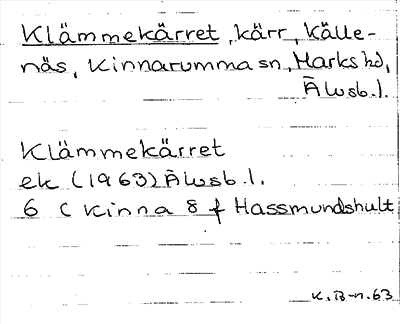 Klämmekärret, kärr, Källe-
näs, Kinnarumma sn, Marks hd,
Älvsb. l.
Klämmekärret
ek (1963) Älvsb. l.
6 C Kinna 8 f Hassmundshult
K. B-n. 63